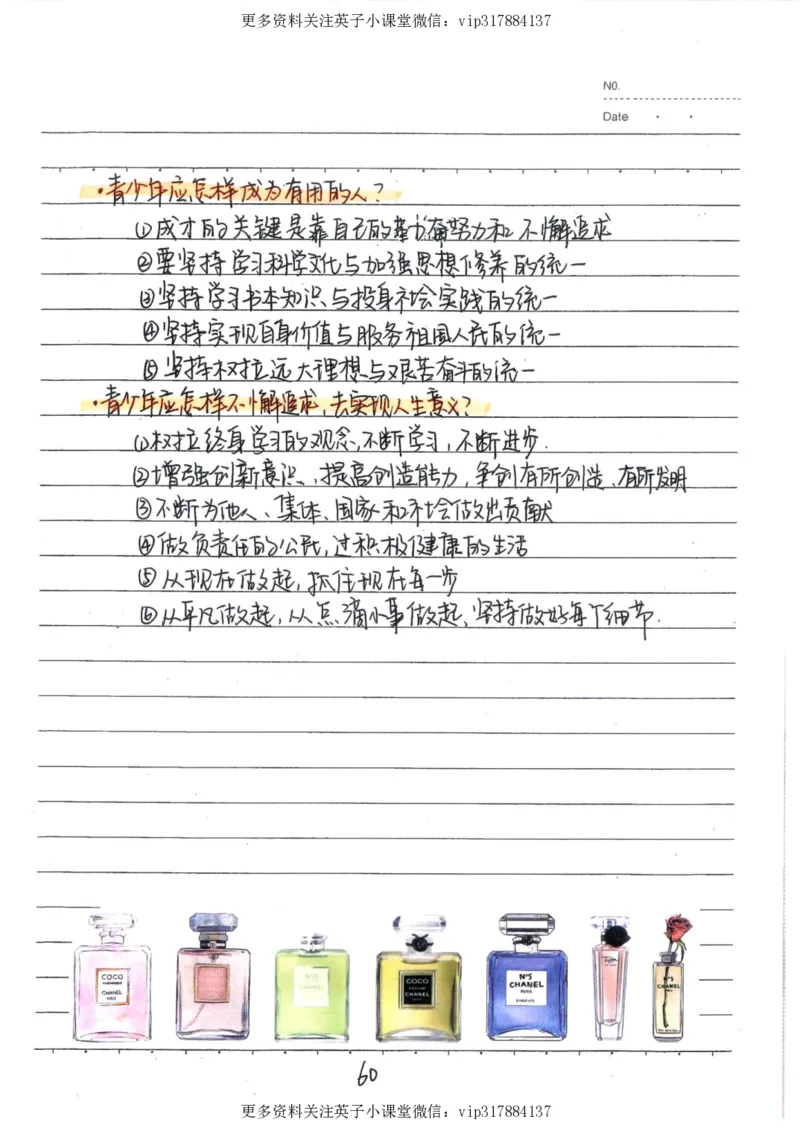 更多资料关注英子小课堂微信：vip317884137
N0.
Date
·青少年应怎样成为有用的人？
①成才的关键是靠自己的勤奋努力和不懈追求
②要坚持学习科学文化与加强思想修养的统一
③坚持学习书本知识与投身社会实践的统一
④坚持实现自身价值与服务祖国人民的统一
⑤坚持树立远大理想与艰苦奋斗的统一
·青少年应怎样不懈追求，去实现人生意义？
①树立终身学习的观念，不断学习，不断进步.
②增强创新意识、提高创造能力，争创有所创造、有所发明
③不断为他人、集体、国家和社会做出贡献
④做负责任的公民，过积极健康的生活
⑤从现在做起，抓住现在每一步
⑥从平凡做起，从点滴小事做起，坚持做好每个细节.
COCO
CHANEL
PARIS
N°5
CHANEL
COCO
CHANEL
N°5
CHANEL
PARIS
N°5
CHANEL
60
更多资料关注英子小课堂微信：vip317884137